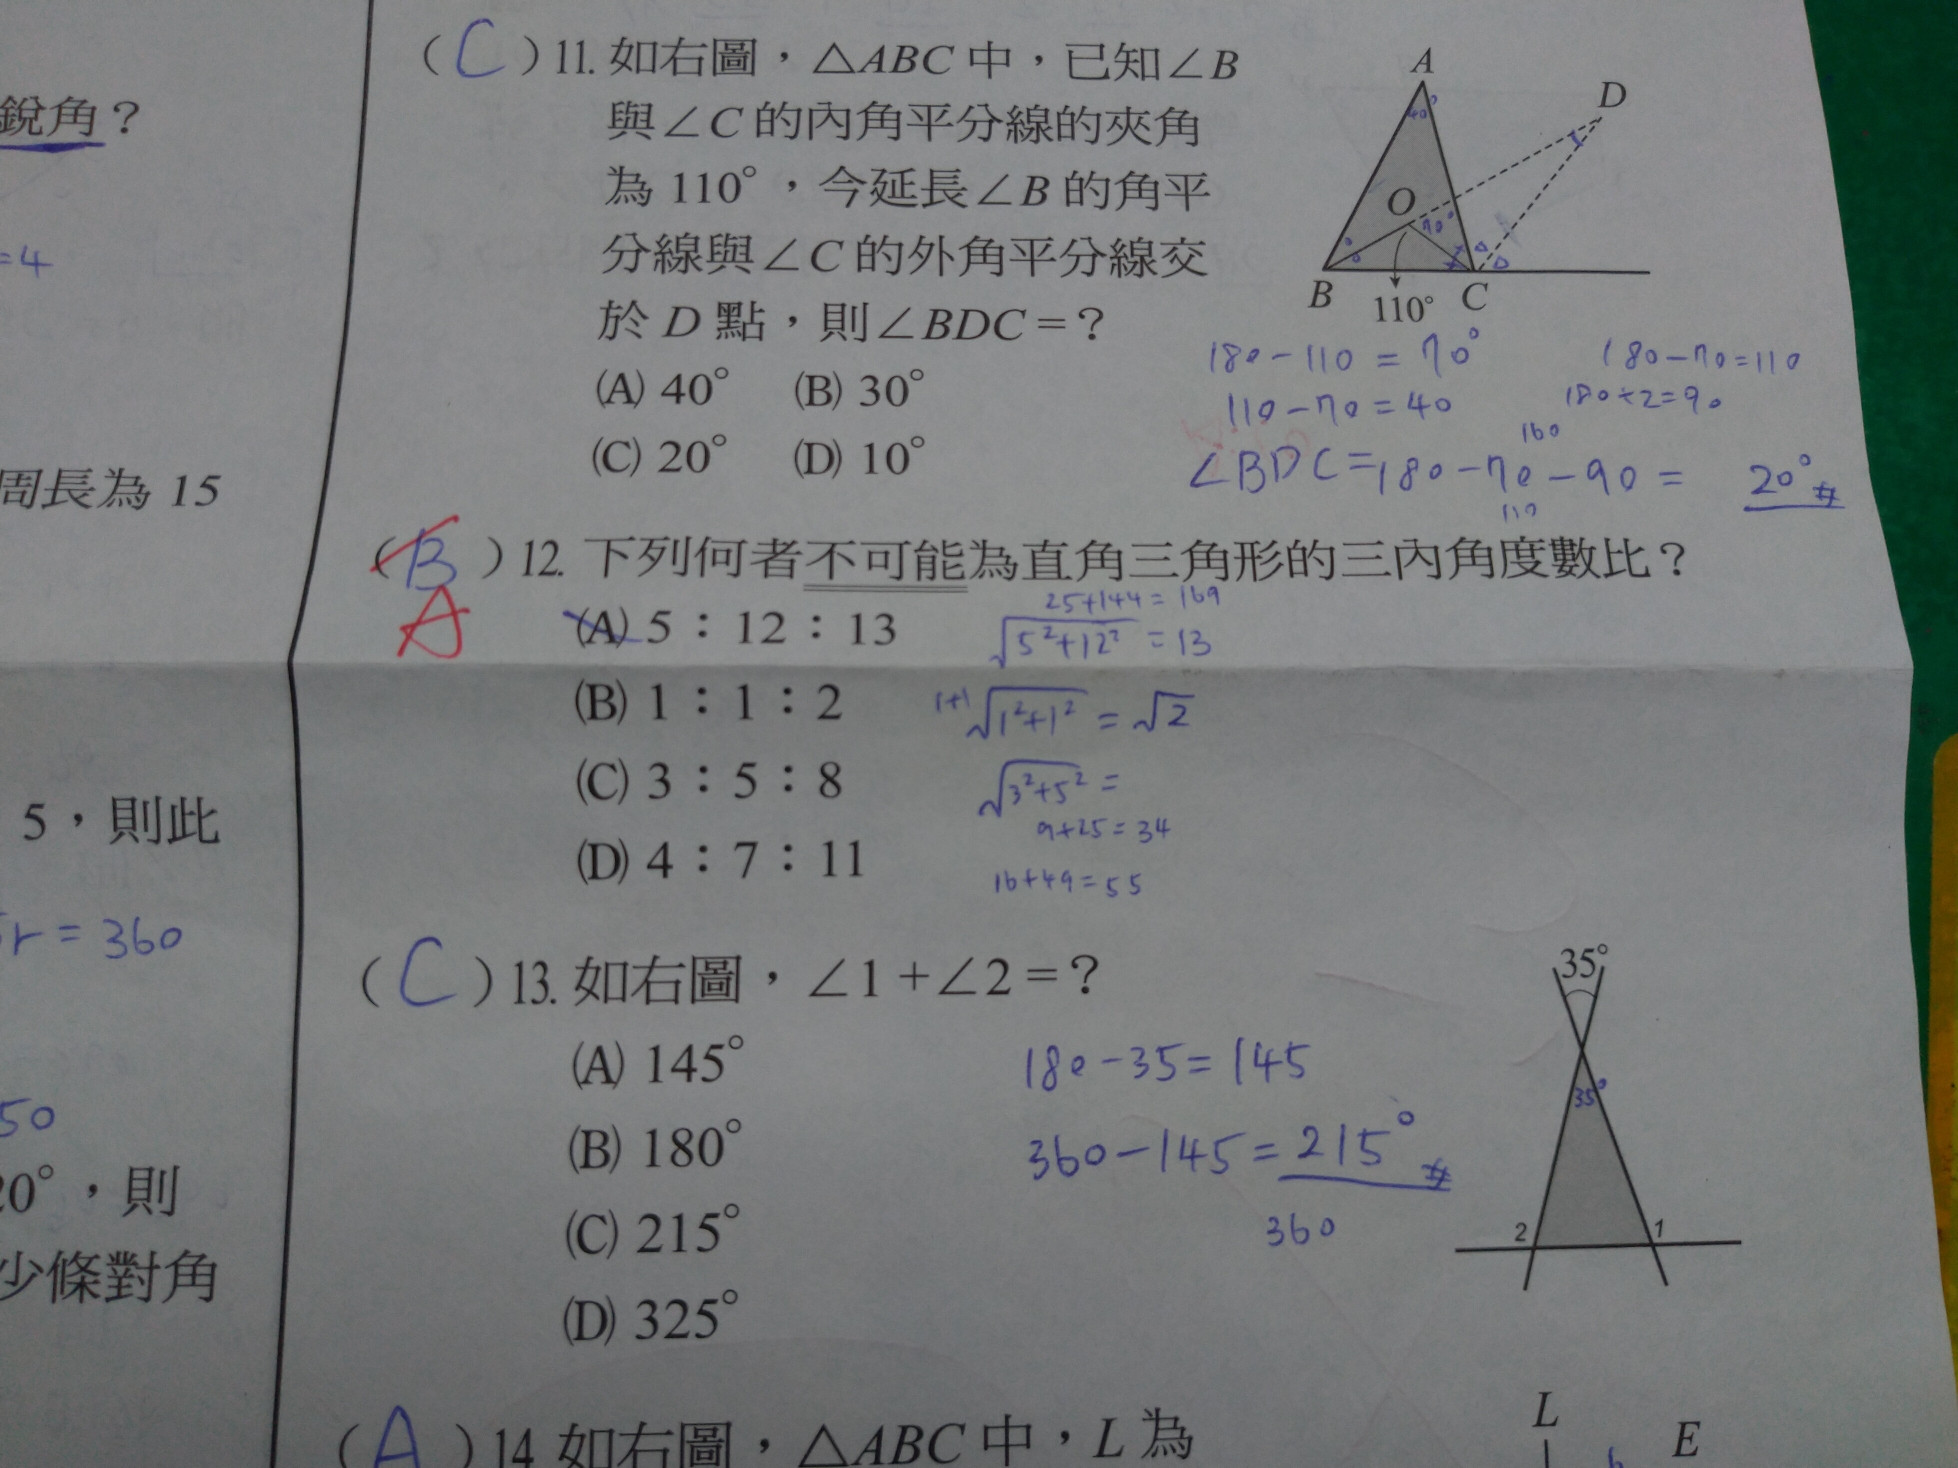 銳角？
=4
周長為 15
5，則此
r=360
50
20°，則
少條對角
(C)11. 如右圖，△ABC 中，已知∠B
與∠C 的內角平分線的夾角
為 110°，今延長∠B 的角平
分線與∠C 的外角平分線交
於 D 點，則∠BDC=？
(A) 40° (B) 30°
(C) 20° (D) 10°
A
D
40°
O
70°
B 110° C
180-110=70° 180-70=110
110-70=40 180÷2=90
160
∠BDC=180-70-90= 20°#
110
(B)12. 下列何者不可能為直角三角形的三內角度數比？
A
25+144=169
(A) 5：12：13 √5²+12²=13
(B) 1：1：2 1+1 √1²+1²=√2
(C) 3：5：8 √3²+5²=
9+25=34
(D) 4：7：11 16+49=55
(C)13. 如右圖，∠1+∠2=？
35°
(A) 145° 180-35=145
35°
(B) 180° 360-145=215°#
(C) 215° 360
2 1
(D) 325°
(A)14. 如右圖，△ABC 中，L 為
L
E